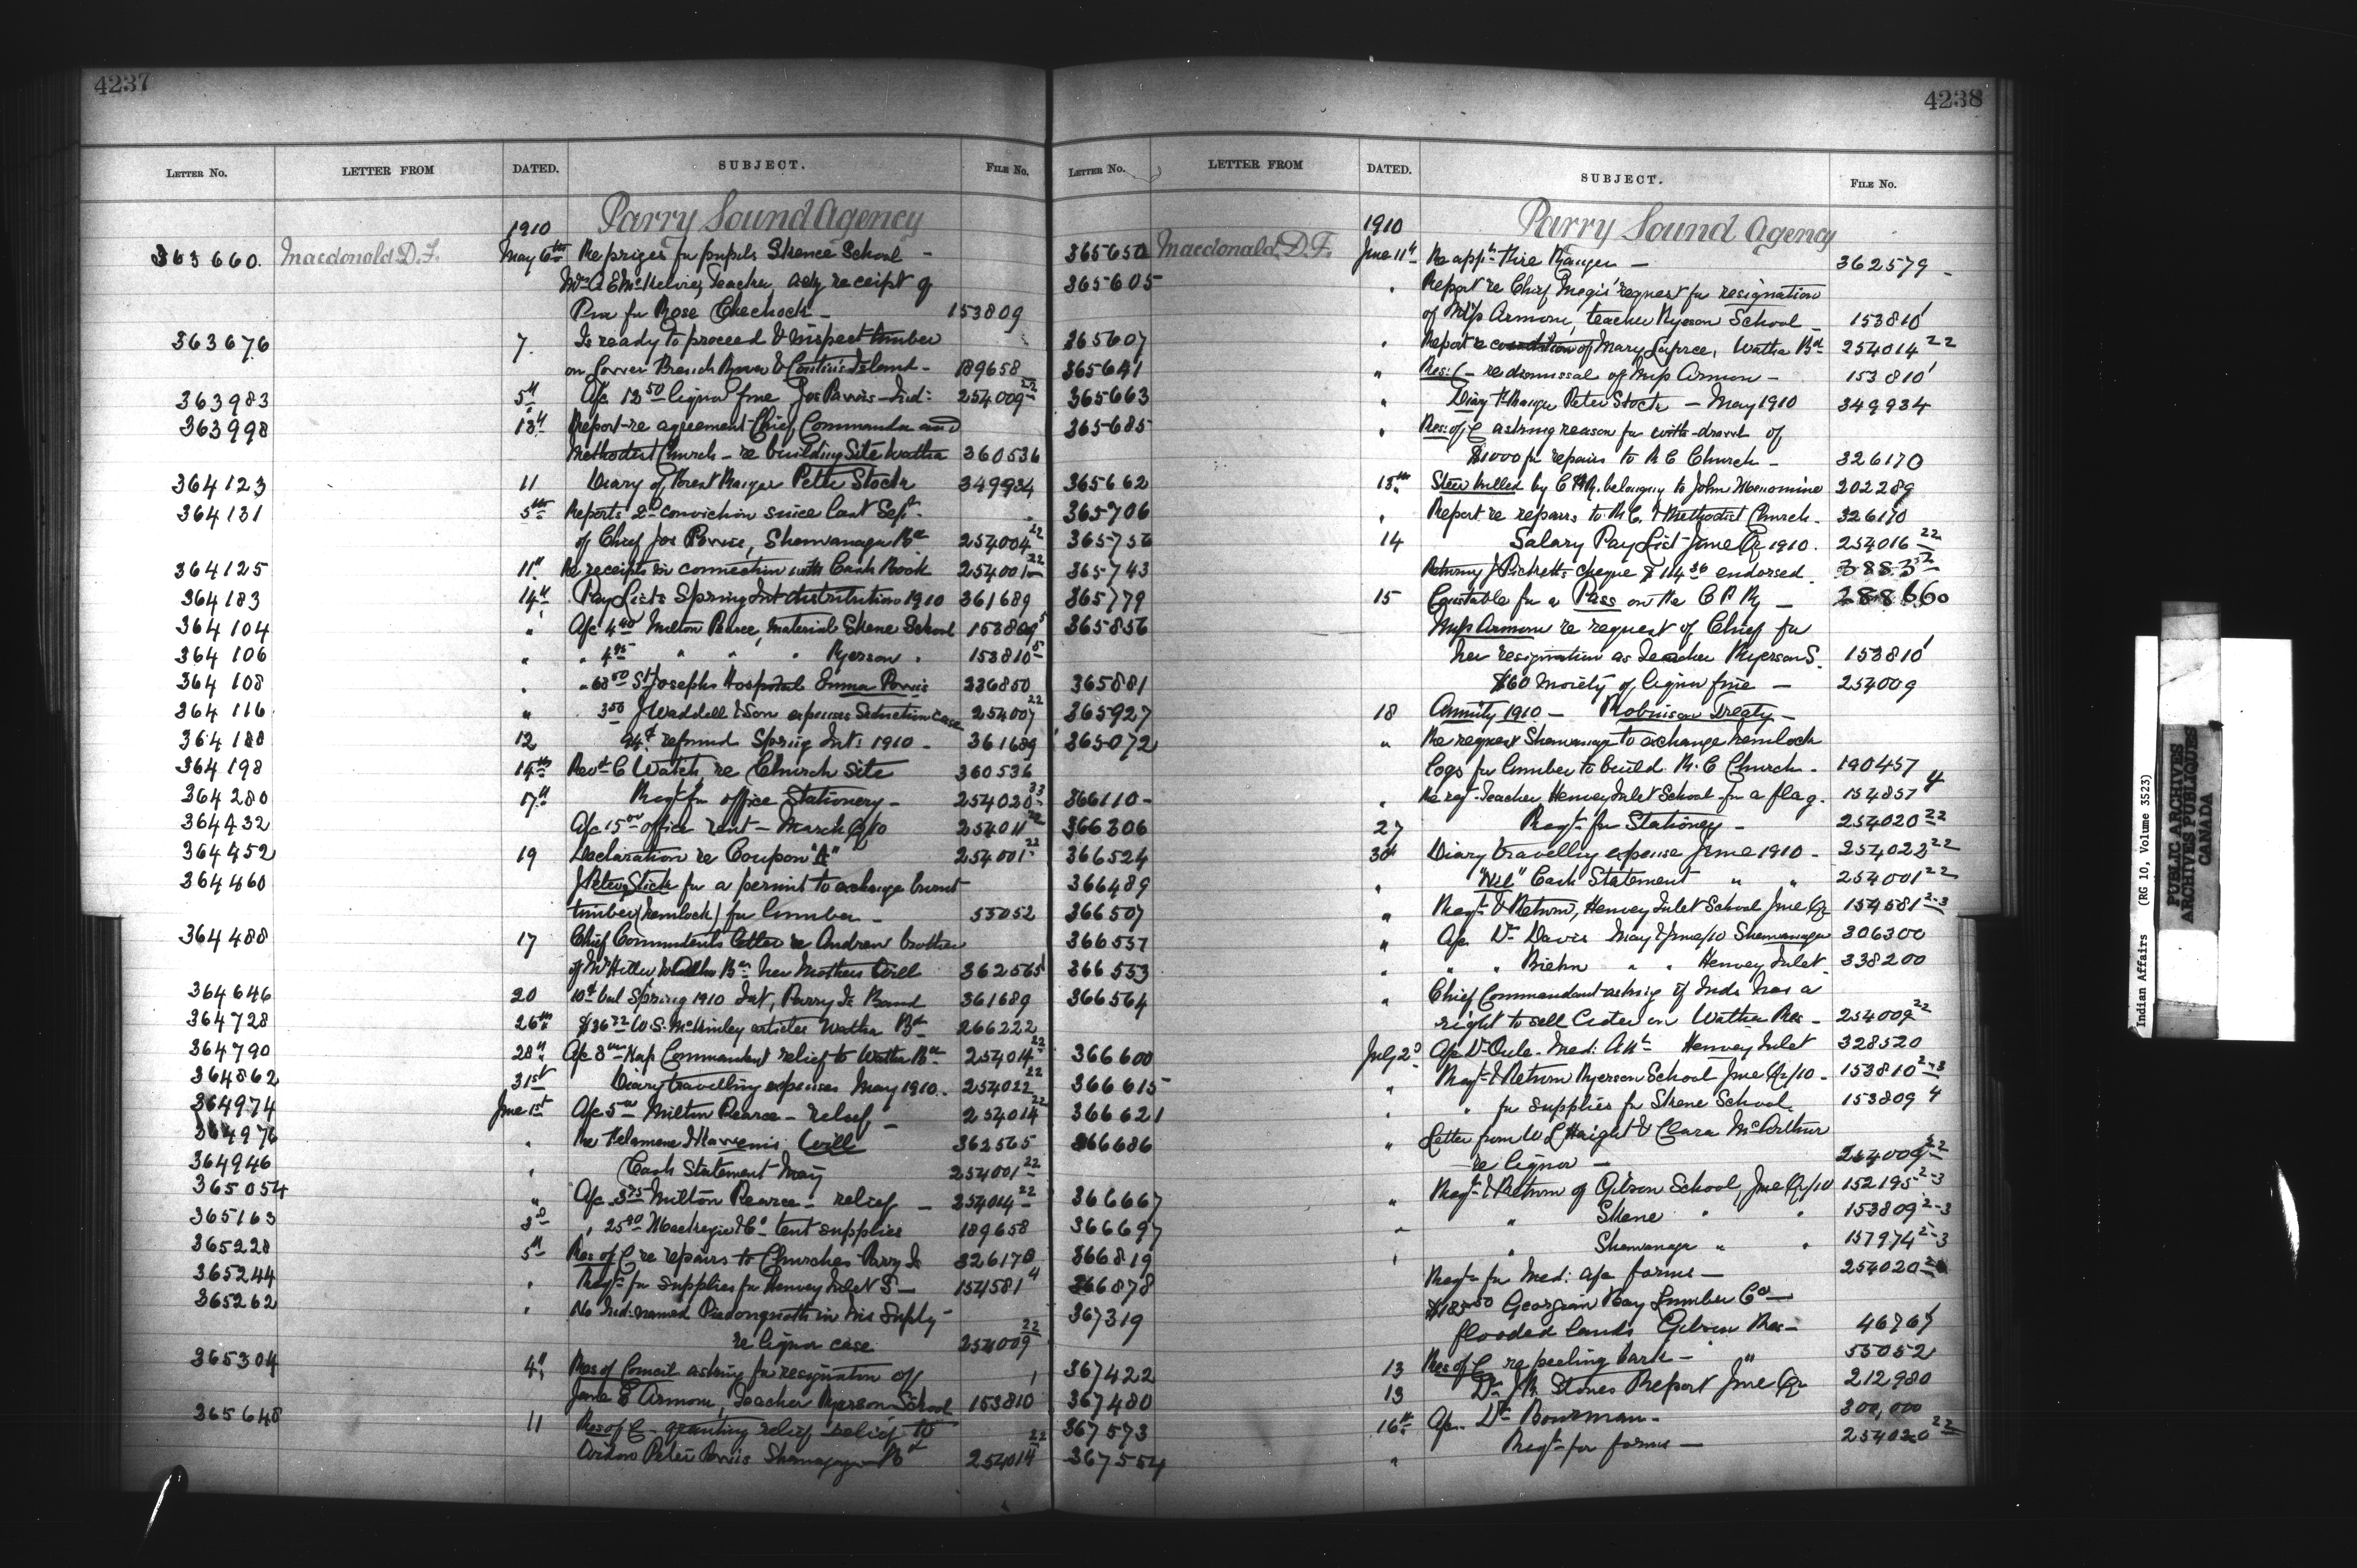 4237
LETTER No. LETTER FROM DATED. SUBJECT. FILE No.
1910 Parry Sound Agency
363660. Macdonald D.F. May 6th Re prizes for pupils Skene School -
Mrs A E McKelvie, Teacher, ackg receipt of
Prize for Rose Chechock - 153809
363676 7. Is ready to proceed & inspect timber
on Lower French River & Island - 189658
363983 5th A/c 12.50 liquor fine Jos Pawis - Ind: 254009 22
363998 13th Report re agreement Chief Commanda and
Methodist Church - re building Site Watha 360536
364123 11 Diary of Forest Ranger Peter Stock 349934
364131 5th Reports 2nd conviction since last Sept.
of Chief Jos Pawis, Shawanaga Bd 254004 22
364125 11th Re receipts in connection with Cash Book 254001 22
364183 14th Pay Lists Spring Int distribution 1910 361689
364104 " A/c 4.40 Milton Pearce, Material Skene School 153809 5
364106 " " 4.95 " " " Ryerson " 153810 5
364108 " " 68.00 St Josephs Hospital Emma Pawis 336850
364116 " 3.50 J Waddell & Son expenses Seduction case 254007 22
364188 12 refund Spring Int: 1910 - 361689
364198 14th Revd C Watch, re Church Site 360536
364280 17th Reqt for office Stationery - 254020 23
364432 A/c 15.00 office rent - March Qr/10 254011 22
364452 19 Declaration re Coupon "A" 254001 22
364460 J Peter Stick for a permit to exchange burnt
timber (hemlock) for lumber - 53052
364488 17 Chief Commandants letter re Andrew brother
of Mr Watha Bd her Mothers Will 362565
364646 20 bal Spring 1910 Int, Parry Is Band 361689
364728 26th $36.72 W.S. McKinley articles Watha Bd 266222
364790 28th A/c 8.00 Nap Commandant relief to Watha Bd 254014 22
364862 31st Diary travelling expenses May 1910. 254022 22
364974 June 1st A/c 5.00 Milton Pearce - relief - 254014 22
364976 " Re Will 362565
364946 " Cash Statement May 254001 22
365054 " A/c 3.75 Milton Pearce - relief - 254014 22
365163 3d " 25.90 Mackenzie & Co - tent supplies 189658
365228 5th Res of C re repairs to Churches Parry Is 326170
365244 " Reqt for supplies for Henvey Inlet S - 154581 4
365262 " No Ind: named in his Suply
re liquor case 254009 22
365304 4th Res of Council asking for resignation of
Jane E Armour, Teacher Ryerson School 153810
365648 11 Res of C - granting relief relief to
Widow Peter Pawis Shawanaga Bd 254014 22
4238
LETTER No. LETTER FROM DATED. SUBJECT. FILE No.
1910 Parry Sound Agency
365650 Macdonald D.F. June 11th Re appt Fire Ranger - 362579 -
365605 " Report re Chief Megis' request for resignation
of Miss Armour, teacher Ryerson School - 153810
365607 " Report re condition of Mary Laforce, Watha Bd 254014 22
365641 " Res: C - re dismissal of Miss Armour - 153810
365663 " Diary F Ranger Peter Stock - May 1910 349934
365685 " Res: of C asking reason for with-drawl of
$1000 for repairs to R C Church - 326170
365662 13th Steer killed by C P R. belonging to John Menomine 202289
365706 " Report re repairs to R.C. & Methodist Church - 326170
365756 14 Salary Pay List June Qr 1910. 254016 22
365743 Returning J Picketts cheque $114.36 endorsed.
365779 15 Constable for a Pass on the C P Ry - 288660
365856 Miss Armour re request of Chief for
her resignation as Teacher Ryerson S. 153810
365881 $60 Moiety of liquor fine - 254009
365927 18 Annuity 1910 - Robinson Treaty -
365072 " Re request Shawanaga to exchange hemlock
logs for lumber to build R.C Church - 190457
366110 - " Re reqt Teacher Henvey Inlet School for a flag. 154857 4
366306 27 Reqt for Stationery - 254020 22
366524 30th Diary travelling expense June 1910 - 254022 22
366489 " "Nil" Cash Statement " " 254001 22
366507 " Reqt & Return, Henvey Inlet School June Qr 154581 2-3
366537 " A/c Dr Davis May & June/10 Shawanaga 306300
366553 " " " Biehn " " Henvey Inlet 338200
366564 " Chief Commandant asking if Inds has a
right to sell Cider on Watha Res - 254009 22
366600 July 2d A/c Dr Med: Att Henvey Inlet 328520
366615 " Reqt & Return Ryerson School June Qr/10 - 153810 2-3
366621 " " for supplies for Skene School. 153809 4
366686 " Letter from W L Haight & Clara McArthur
re liquor - 254009 22
366667 " Reqt & Return of Gibson School, June Qr/10 152195 2-3
366697 " " Skene " " 153809 2-3
366819 " " Shawanaga " " 157974 2-3
366878 Reqt for Med: A/c forms - 254020 22
367319 Georgian Bay Lumber Co -
flooded lands Gibson Res -
367422 13 Res of C re peeling bark - " 53052
367480 13 Dr J.R. Stones Report June Qr 212980
367573 16th A/c Dr Bowman - 300,000
367554 " Reqt for forms - 254020 22
Indian Affairs (RG 10, Volume 3523)
PUBLIC ARCHIVES
ARCHIVES PUBLIQUES
CANADA